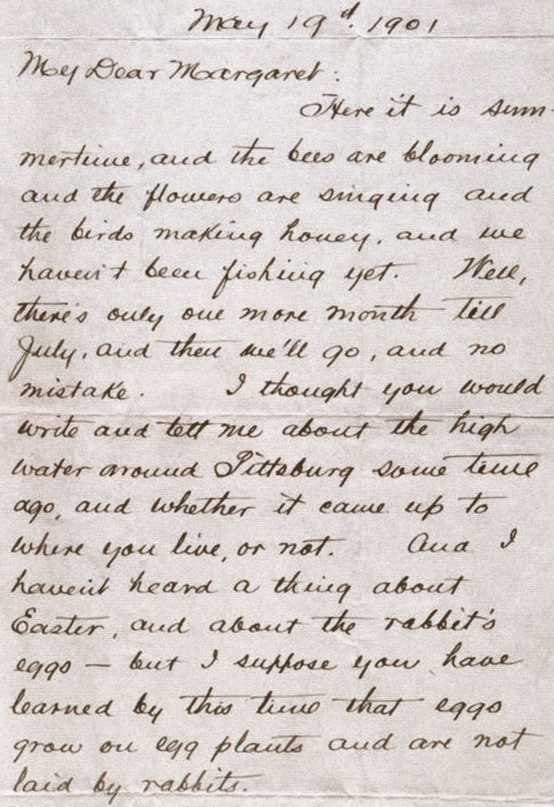 May 19d. 1901
My Dear Margaret:
Here it is sum-
mertime, and the bees are blooming
and the flowers are singing and
the birds making honey, and we
haven't been fishing yet. Well,
there's only one more month till
July, and then we'll go, and no
mistake. I thought you would
write and tell me about the high
water around Pittsburg some time
ago, and whether it came up to
where you live, or not. And I
haven't heard a thing about
Easter, and about the rabbit's
eggs — but I suppose you have
learned by this time that eggs
grow on egg plants and are not
laid by rabbits.